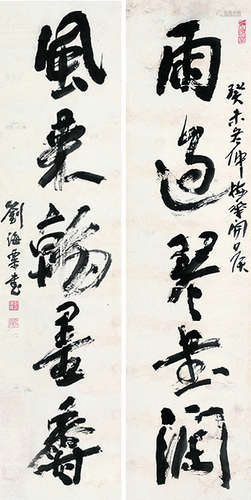 雨過琴書潤
癸未冬仲
風來翰墨香
劉海粟書